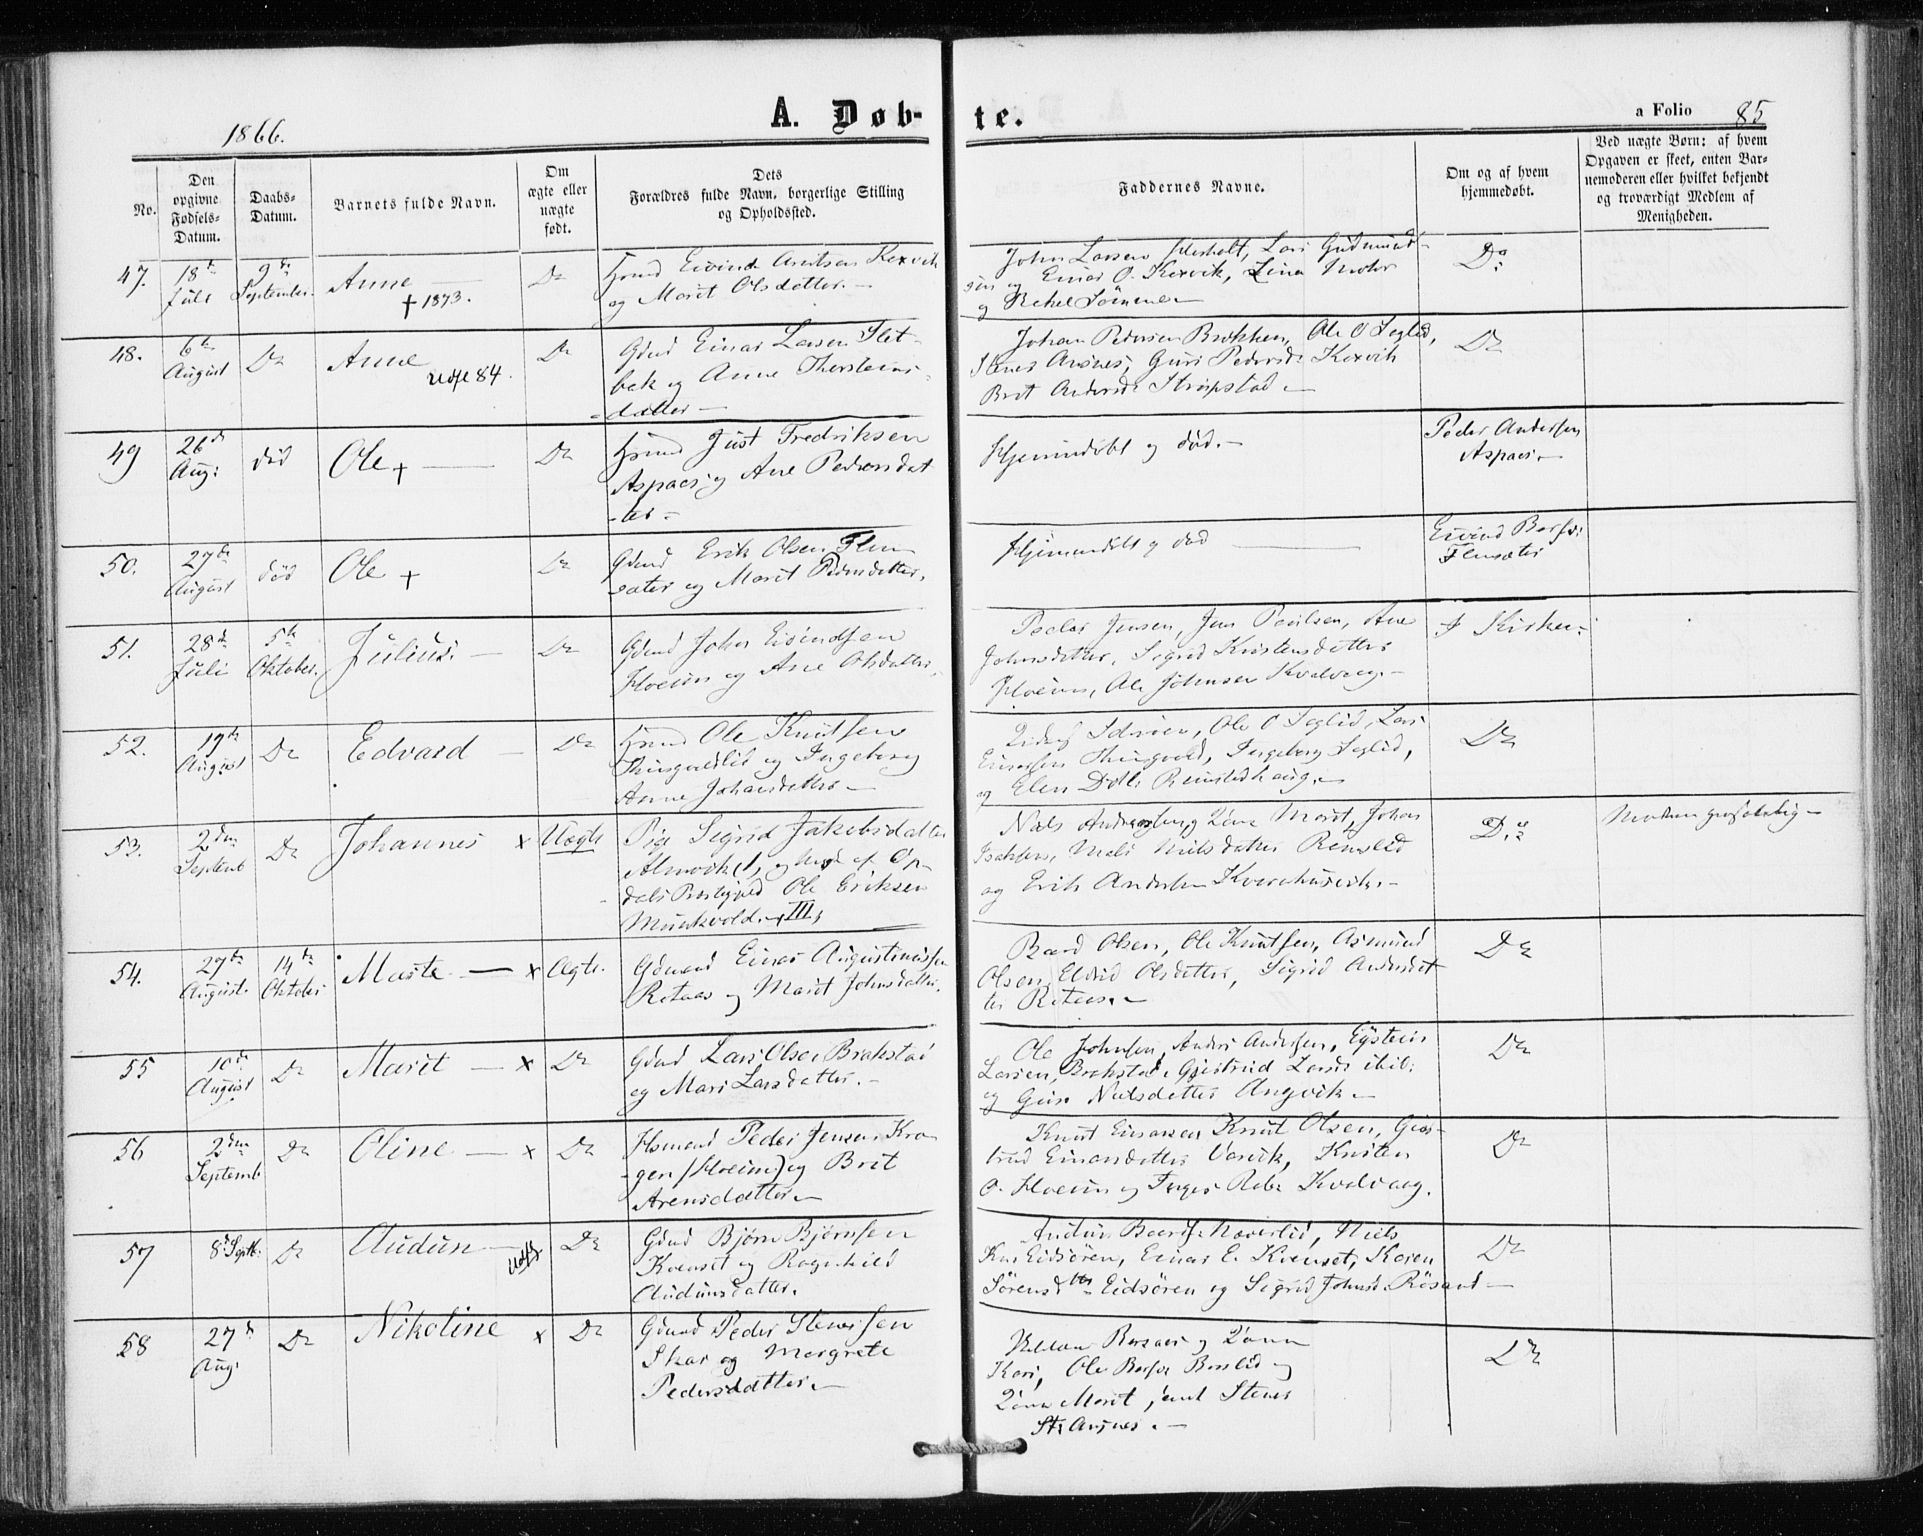 1866.
A. Døb-
te.
a Folio 85
No.
Den
opgivne
Fødsels-
Datum.
Daabs-
Datum.
Barnets fulde Navn.
Om
ægte eller
uægte
født.
Dets
Forældres fulde Navn, borgerlige Stilling
og Opholdssted.
Faddernes Navne.
Om og af hvem
hjemmedøbt.
Ved uægte Børn: af hvem
Opgaven er skeet, enten Bar-
nemoderen eller hvilket bekjendt
og troværdigt Medlem af
Menigheden.
47.
18de
Juli
9de
September.
Anne
† 1873.
Do
Eivind Arntsen Kexvik
og Marit Olsdatter.-
John Larsen, Lars Gudmund-
sen og Einar O. Kexvik, Lina Mohr
og Rekel
Do
48.
6te
August
Do
Anne
84.
Do
Gdmd Einar Larsen Slet-
bak og Anne Thorsteins-
datter -
Johan Pedersen Brokken, Ole O Seglid,
Stener Arsnes, Guri Pedersd. Kexvik
Brit Andersd.
Do
49
26de
Aug:
død
Ole +
Do
Just Fredriksen
Aspaas og Ane Pedersdat
-ter -
Hjemmedøbt og død. -
Peder Andersen
Aspaas -
50.
27de
August
død
Ole +
Do
Gdmd Erik Olsen Flem-
sæter og Marit Pedersdatter,
Hjemmedøbt og død
Eivind
Flemsæter
51.
28de
Juli
5te
Oktober.
Julius. -
Do
Gdmd John Eivindsen
Hoeim og Ane Olsdatter.
Peder Jensen, Jens Poulsen, Ane
Johnsdatter, Sigrid Kristensdatter
Hoeim, Ole Johnsen Kvalvaag. -
I Kirken.
52.
19de
August
Do
Edvard -
Do
Ole Knutsen
Thingvoldlid og Ingeborg
Anne Johansdatter -
Ole O Seglid, Lars
Thingvold, Ingeborg Seglid,
og Elen
Do
53.
2den
Septemb
Do
Johannes x
Uægte
Pige Sigrid Jakobsdatter
Almvik (I, og af Op-
dals Præstegjeld Ole Eriksen
Munkvold. - III,
Niels Andersen og Kone Marit, Johan
Isaksen, Mali Nielsdatter Remslid
og Erik Andersen
Do
Moderen
54.
27de
August.
14de
Oktober
Marte - x
Ægte.
Gdmand Einar Augustinussen
Rotaas og Marit Johnsdatter.
Baard Olsen, Ole Knutsen, Asmund
Olsen, Eldrid Olsdatter, Sigrid Andersdat
ter Rotaas. -
Do
55
10de
August
Do
Marit - x
Do
Gdmd Lars Olsen Brakstad
og Mari Larsdatter. -
Ole Johnsen, Anders Andersen, Eystein
Larsen, Brakstad, Gjertrud Larsd. ibid:
og Guri Nielsdatter Angvik -
Do
56
2den
Septemb
Do
Oline - x
Do
Husmand Peder Jensen Kra-
gen (Hoeim) og Brit
Arensdatter -
Knut Einarsen Knut Olsen, Gjer-
trud Einarsdatter Vaavik, Kristen
O. Hoeim og Kvalvaag.
Do
57
8de Septb:
Do
Audun -
Do
Gdmd Bjørn Bjørnsen
Kvenset og Ragnhild
Audunsdatter.
Audun Niels
Eidsören, Einar E. Kvenset, Karen
Sörensdtr Eidsören og Sigrid Johnsd. Rösand -
Do
58
27de
Aug:
Do
Nikoline x
Do
Gdmd Peder Stenersen
Skar og Margrete
Pedersdatter -
og Kone
Kari, Ole og
Kone Marit, samt Stener
Arsnes. -
Do